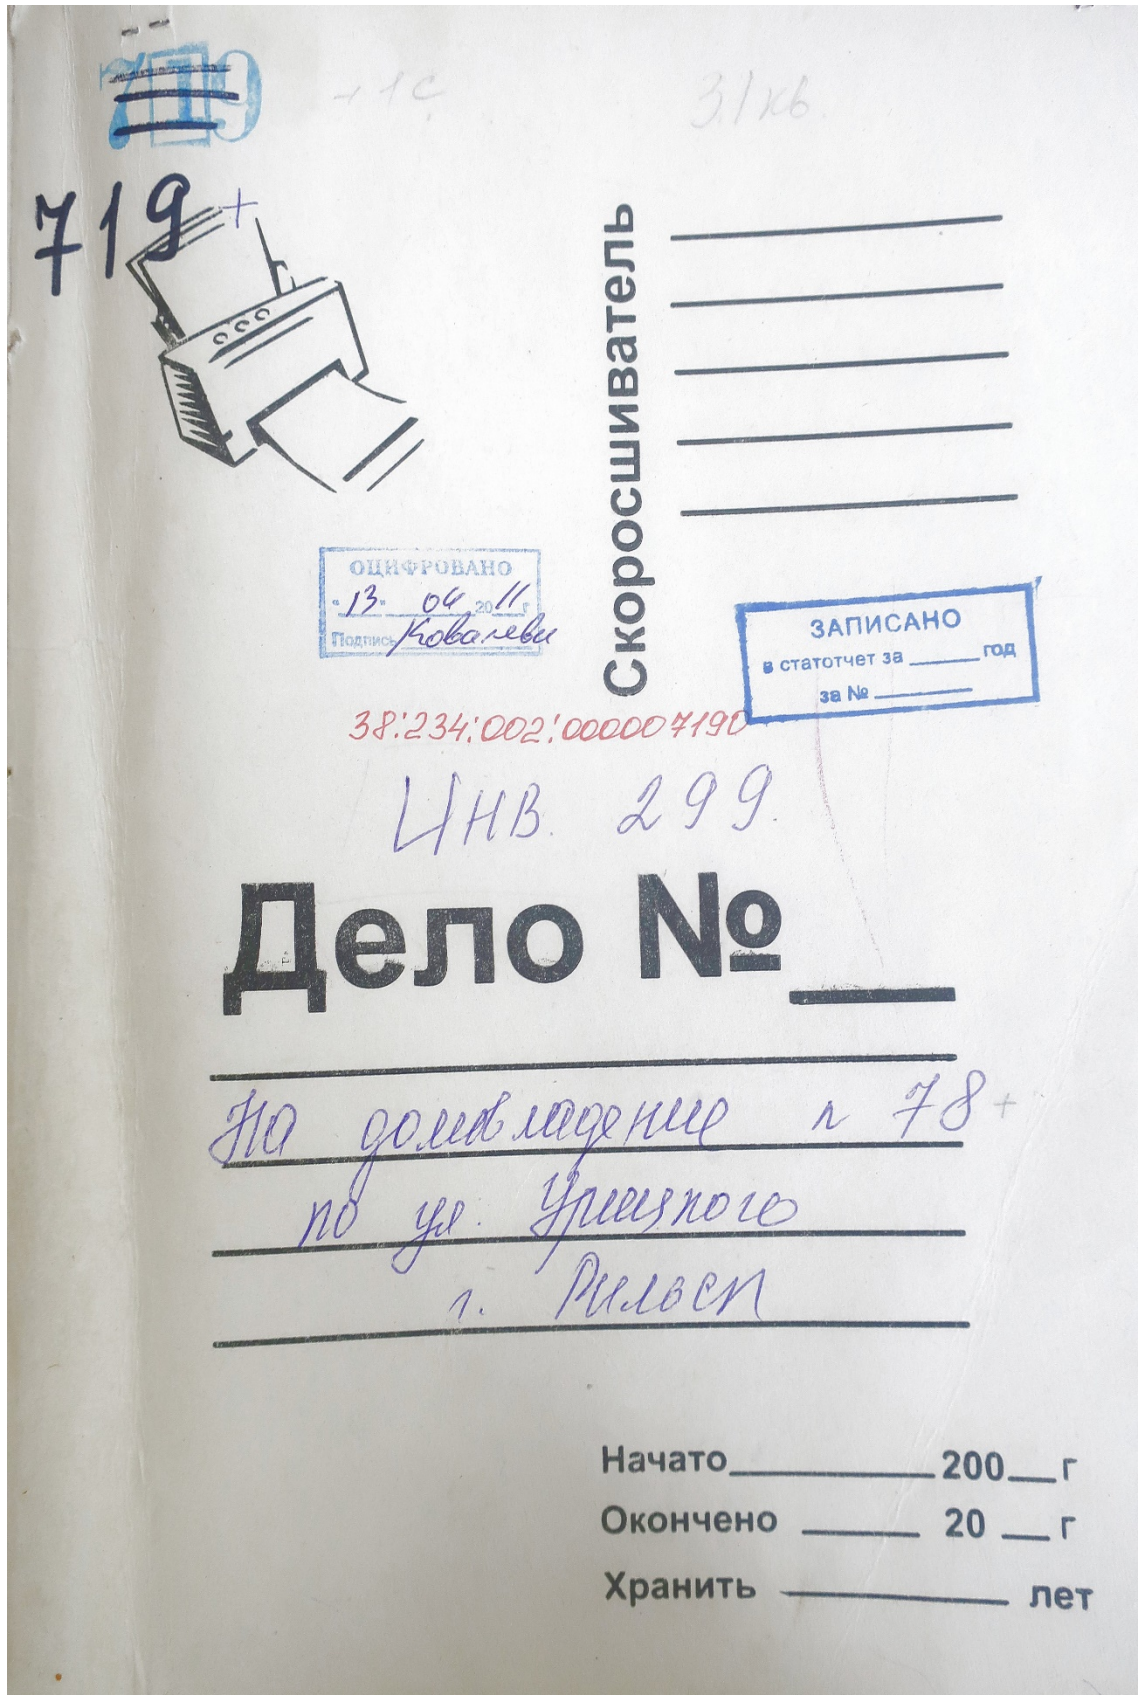 719
+1С
31кв.
719+
Скоросшиватель
ОЦИФРОВАНО
"13" 04 2011г
Подпись
ЗАПИСАНО
в статотчет за ______ год
за № ______
38:234:002:000007190
Инв. 299.
Дело №__
На домовладение n 78+
по ул. Урицкого
г. Рильск
Начато ______ 200__ г
Окончено ______ 20 __ г
Хранить ______ лет